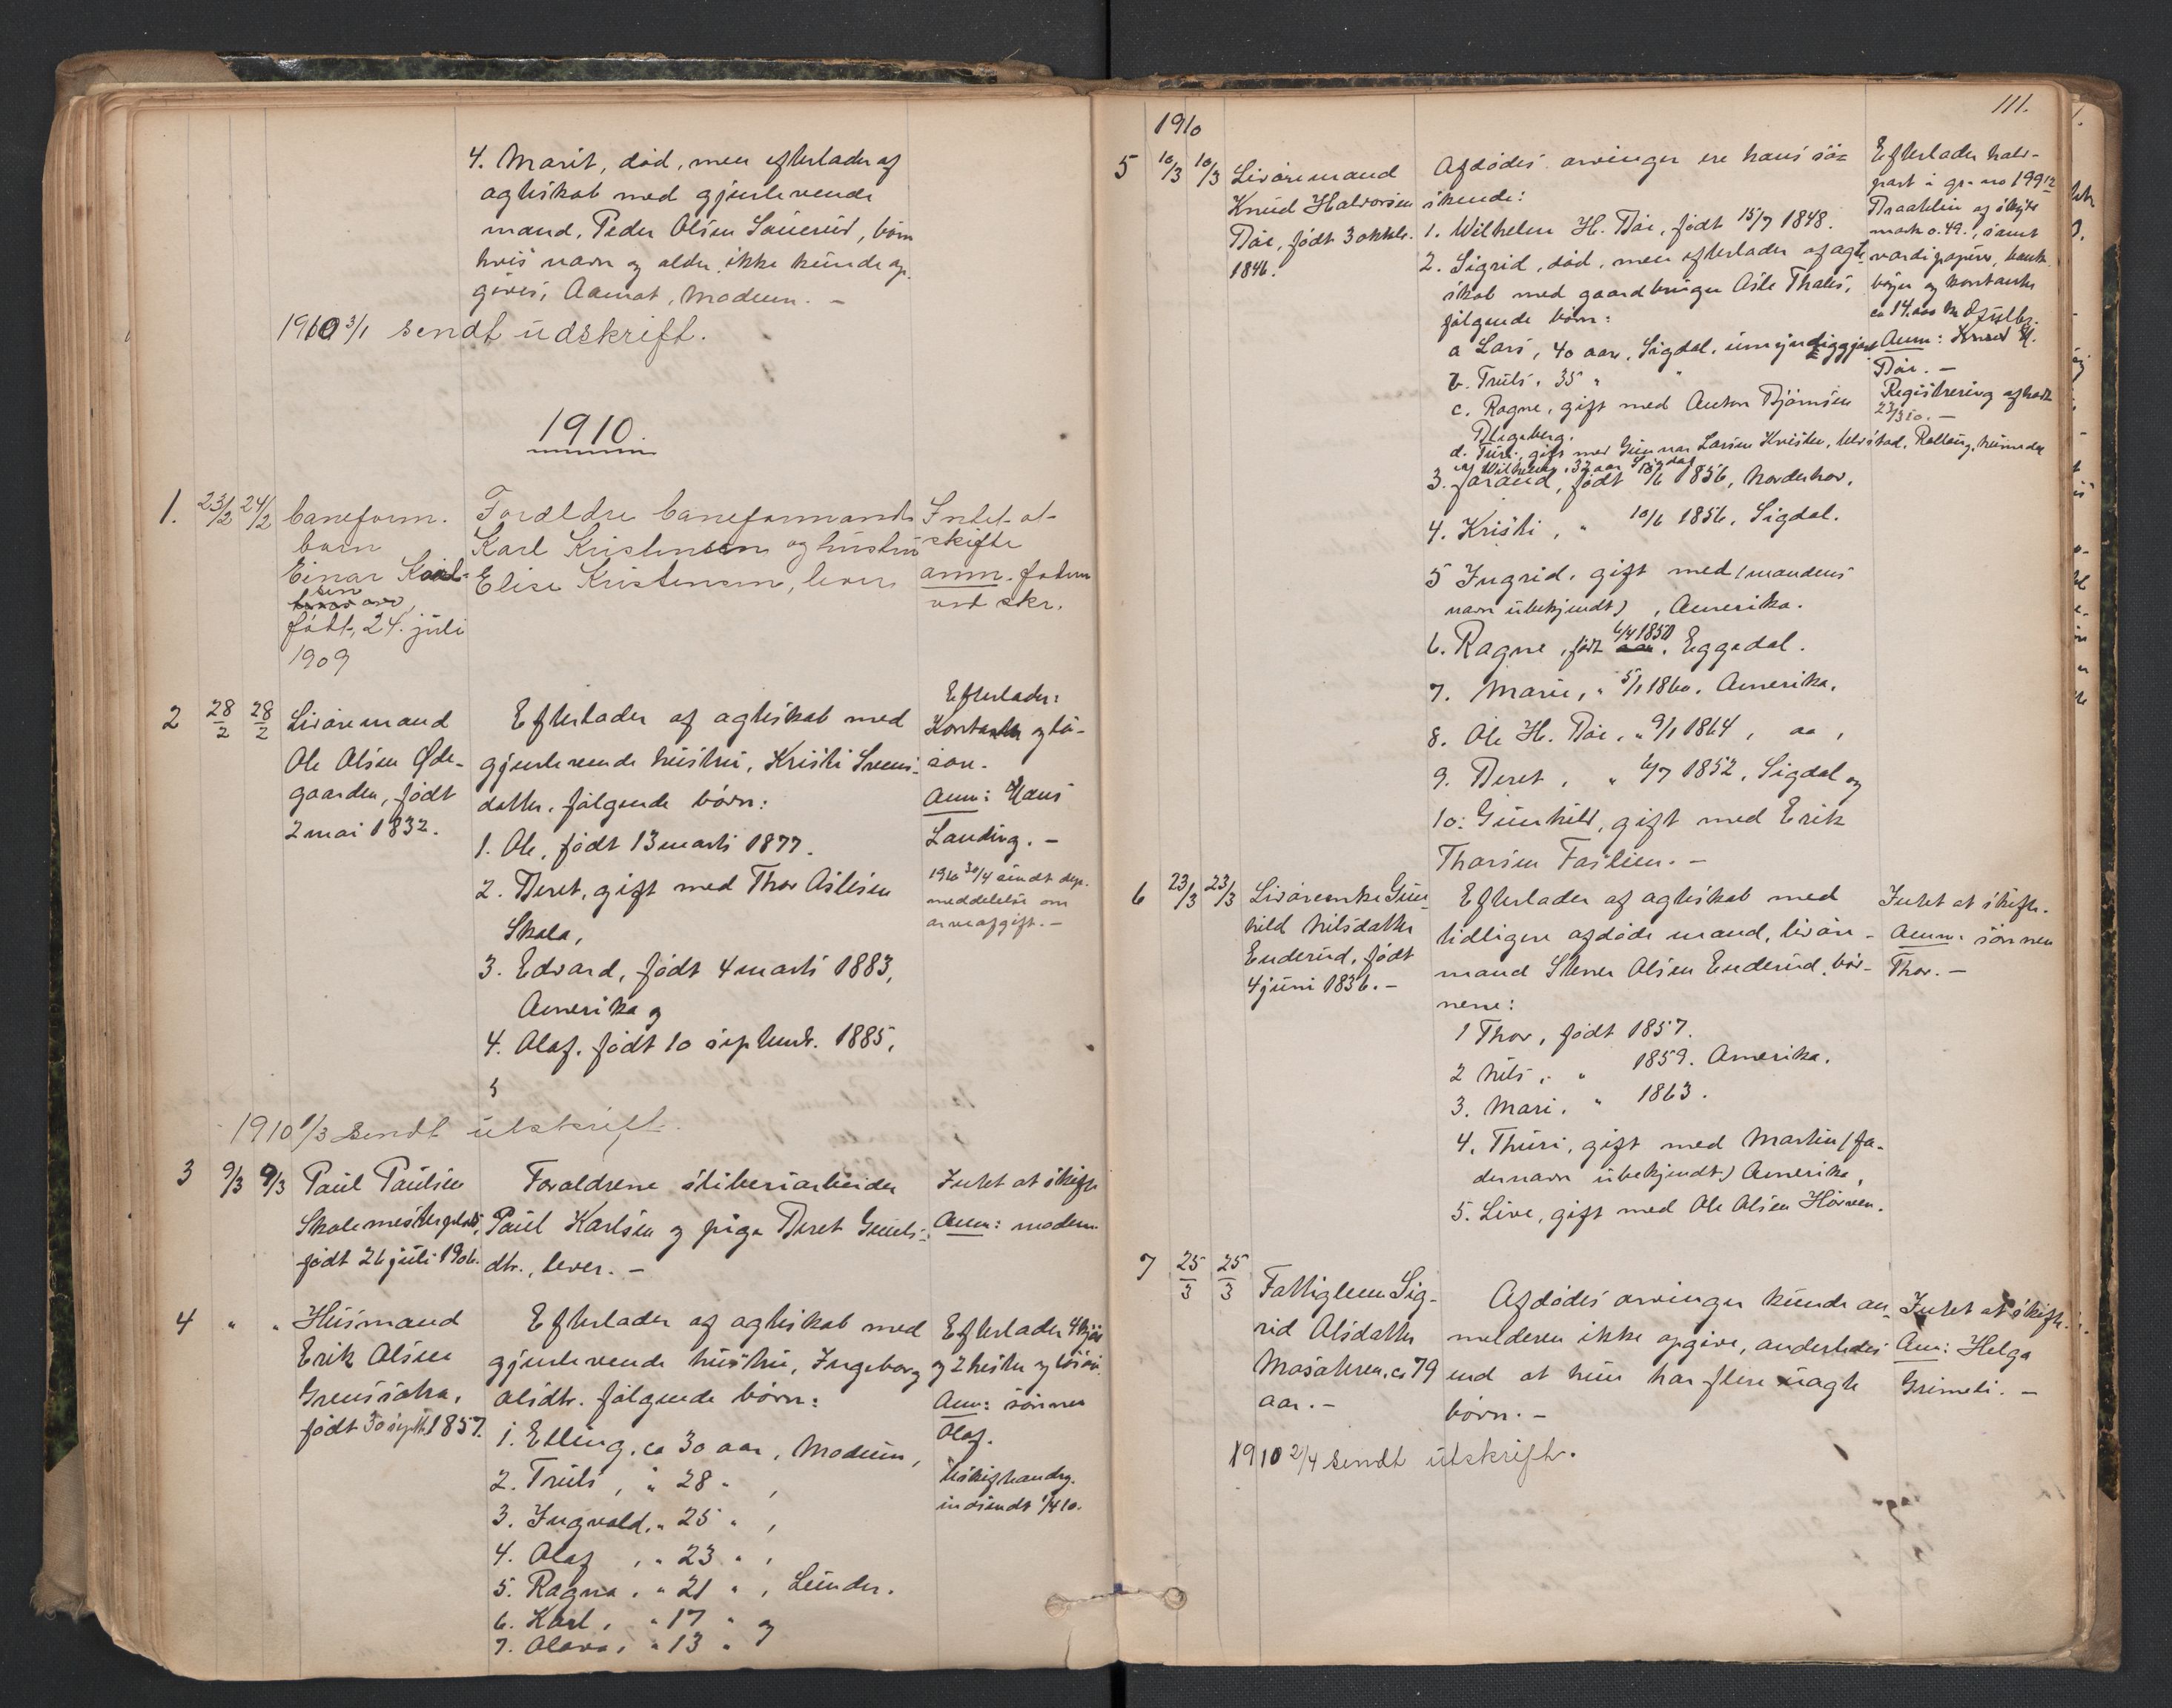 4. Marit, død, men efterlader af
ægteskab med gjenlevende
mand, Peder Olsen børn
hvis navn og alder ikke kunde op-
gives, Aamot, Modum. -
1910 3/1 sendt udskrift.
1910.
1. 23/2 24/2 baneform.
barn
Einar Karl-
sen
født, 24. juli
1909
Forældre baneformand
Karl Kristensen og hustru
Elise Kristensen, lever
Intet at
skifte
anm. faderen
ved skr.
2 28/2 28/2 Livøremand
Ole Olsen Øde-
gaarden, født
2 mai 1832.
Efterlader af ægteskab med
gjenlevende hustru, Kristi Svens-
datter, følgende børn:
1. Ole, født 13 marts 1877.
2. Beret, gift med Thor Aslesen
Skala,
3. Edvard, født 4 marts 1883,
Amerika og
4. Olaf, født 10 septembr. 1885,
Efterlader:
Kontanter og lø-
søre.
Anm: Hans
Landing. -
1910 30/4 sendt dep.
meddelelse om
arveafgift. -
1910 1/3 sendt utskrift.
3 9/3 9/3 Paul Paulsen
Skolemesterplads,
født 26 juli 1906.
Forældrene sliberiarbeider
Paul Karlsen og pige Beret
dtr., lever. -
Intet at skifte
Anm: moderen
4 " " Husmand
Erik Olsen
Grenssætra,
født 30 septb. 1857.
Efterlader af ægteskab med
gjenlevende hustru, Ingeborg
Olsdtr. følgende børn:
1. Elling, ca 30 aar, Modum,
2. Truls, " 28 " ,
3. Ingvald, " 25 " ,
4. Olaf , " 23 " ,
5. Ragna , " 21 " , Lunder.
6. Karl , " 17 " og
7. Olava , " 13 "
Efterlader 4 kjør
og 2 hester og løsøre.
Anm: sønnen
Olaf.
Uskiftbandrg.
indsendt 1/4 10.
111.
1910
5 10/3 10/3 Livøremand
Knud Halvorsen
Bøe, født 3 oktbr.
1846.
Afdødes arvinger ere hans sø-
skende:
1. Wilhelm H. Bøe, født 15/7 1848.
2. Sigrid, død, men efterlader af ægte-
skab med gaardbruger Asle Thales,
følgende børn:
a Lars, 40 aar, Sigdal, umyndiggjort
b. Truls, 35 " "
c. Ragne, gift med Anton Bjørnsen
Bligeberg.
d. Turi, gift med Gunnar Larsen Kristen, Ulvstad, Rolloug, Numedal
e/ Wilhelm, 32 aar Sigdal
3. Jøraud, født 1/6 1856, Norderhov,
4. Kristi , " 10/6 1856, Sigdal.
5 Ingrid, gift med (mandens
navn ubekjendt) , Amerika.
6. Ragne , født 6/4 1850, Eggedal.
7. Marie, " 5/1 1860, Amerika,
8. Ole H. Bøe, " 9/1 1864 , aa ,
9. Beret , " 6/7 1852, Sigdal og
10: Gunhild, gift med Erik
Thorsen Faslien. -
Efterlader halv-
part i gr. no 199 12
Braatelien af skyld
mark 0.49., samt
værdipapirer, bank-
bøger og kontanter
ca 14.000 kr
Anm: Knud H.
Bøe. -
Registrering afholdt
23/3 10. -
6 23/3 23/3 Livørenke Gun-
hild Nilsdatter
Enderud, født
4 juni 1836. -
Efterlader af ægteskab med
tidligere afdøde mand, livøre-
mand Stener Olsen Enderud, bør-
nene:
1 Thor, født 1857.
2 Nils , " 1859. Amerika.
3. Mari , " 1863.
4. Thuri, gift med Martin (fa-
dernavn ubekjendt) Amerika,
5. Live, gift med Ole Olsen Horven.
Intet at skifte.
Anm: sønnen
Thor. -
7 25/3 25/3 Fattiglem Sig-
rid Olsdatter
Masateren, ca 79
aar. -
Afdødes arvinger kunde an-
melderen ikke opgive, anderledes
end at hun har flere uægte
børn. -
Intet at skifte.
Anm: Helge
Grimeli. -
1910 2/4 sendt utskrift.